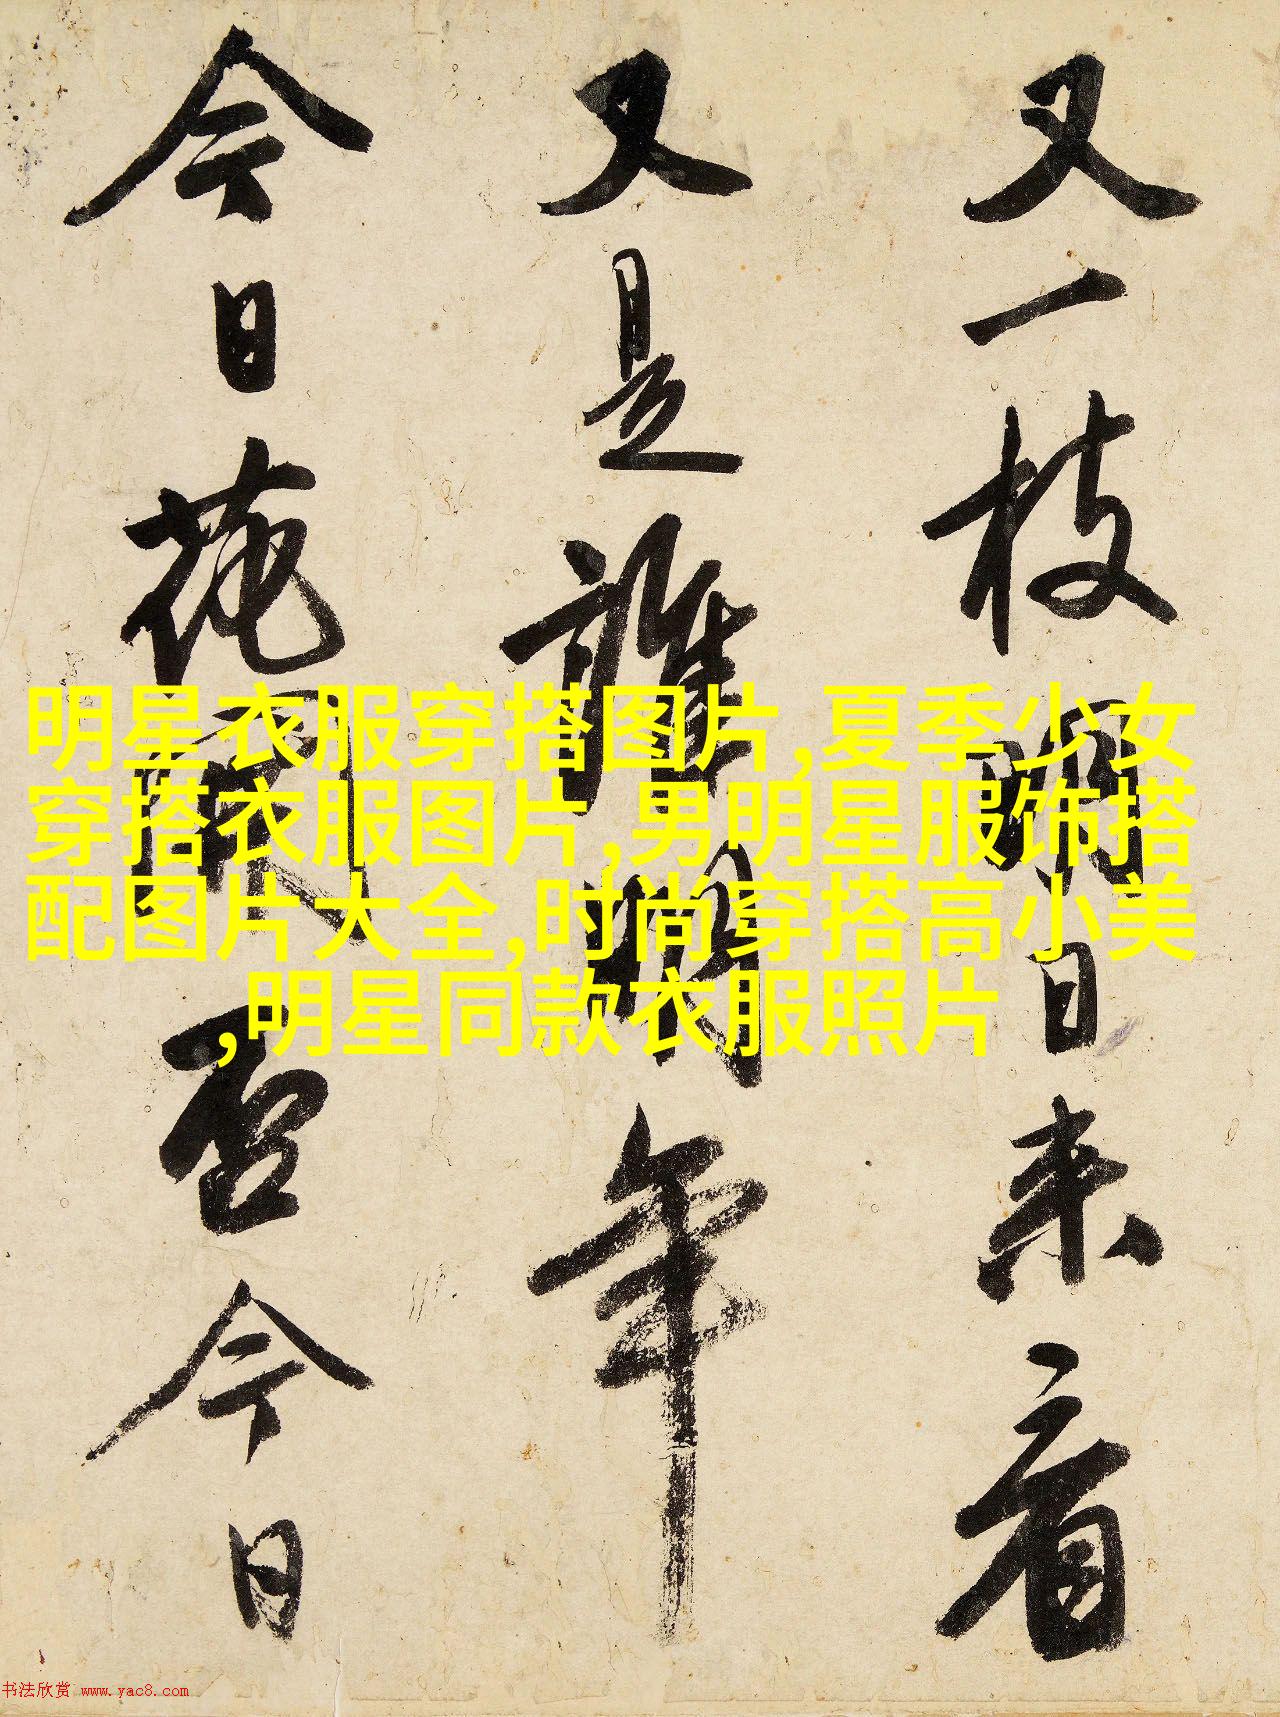 又一枝明日来看
又是谁明年
今日花开否今日
明星衣服穿搭图片,夏季少女
穿搭衣服图片,男明星服饰搭
配图片大全,时尚穿搭高小美
,明星同款衣服照片
书法欣赏 www.yac8.com